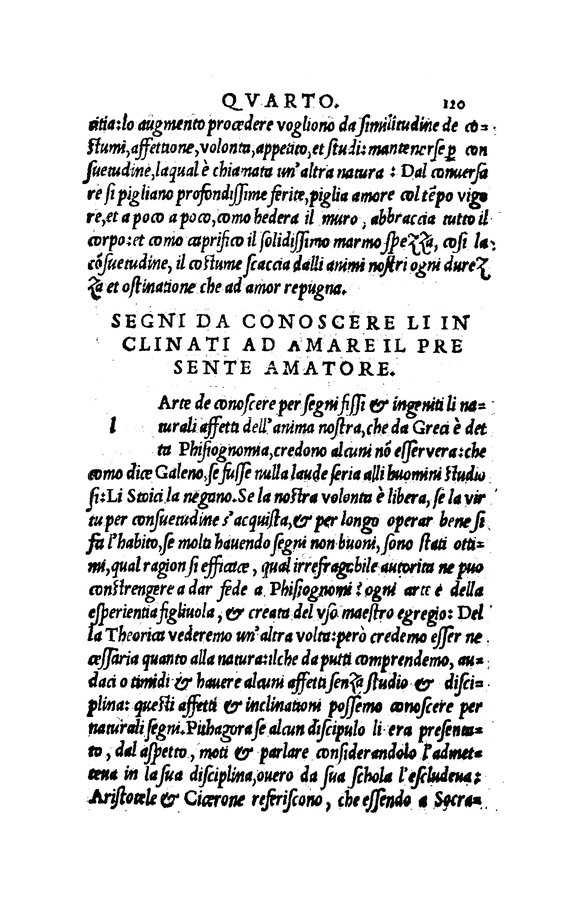 QVARTO. 120
titia:lo augmento procedere vogliono da similitudine de co=
stumi, affettione, volonta, appetito, et studi: mantenerse ꝑ con
suetudine, laqual è chiamata un'altra natura: Dal conuersa
re si pigliano profondissime ferite, piglia amore col tẽpo vigo
re, et a poco a poco, como hedera il muro, abbraccia tutto il
corpo: et como caprifico il solidissimo marmo spezza, cosi la
cõsuetudine, il costume scaccia dalli animi nostri ogni durez
za et ostinatione che ad amor repugna.
SEGNI DA CONOSCERE LI IN
CLINATI AD AMARE IL PRE
SENTE AMATORE.
Arte de conoscere per segni fissi & ingeniti li na=
l turali affetti dell'anima nostra, che da Greci è det
ta Phisiognomia, credono alcuni nõ esservera: che
como dice Galeno, se fusse nulla laude seria alli huomini studio
si: Li Stoici la negano. Se la nostra volonta è libera, se la vir
tu per consuetudine s'acquista, & per longo operar bene si
fa l'habito, se molti hauendo segni non buoni, sono stati otti=
mi, qual ragion si efficace, qual irrefragabile autorita ne puo
constrengere a dar fede a Phisiognomi? ogni arte è della
esperientia figliuola, & creata del vso maestro egregio: Del
la Theorica vederemo un'altra volta: però credemo esser ne
cessaria quanto alla natura: ilche da putti comprendemo, au=
daci o timidi & hauere alcuni affetti senza studio & disci=
plina: questi affetti & inclinationi possemo conoscere per
naturali segni. Pithagora se alcun discipulo li era presenta=
to, dal aspetto, moti & parlare considerandolo l'admet=
teua in la sua disciplina, ouero da sua schola l'escludeua:
Aristotele & Cicerone referiscono, che essendo a Socra=